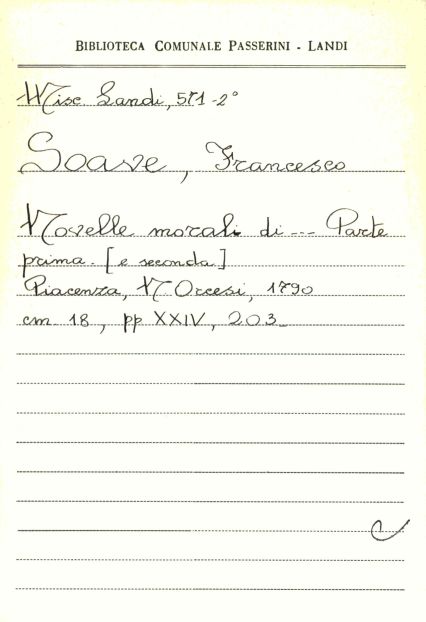 BIBLIOTECA COMUNALE PASSERINI - LANDI
Misc. Landi, 571-2°
Soave, Francesco
Novelle morali di --- Parte
prima. [e seconda]
Piacenza, N Orcesi, 1790
cm 18, pp XXIV, 203_
C